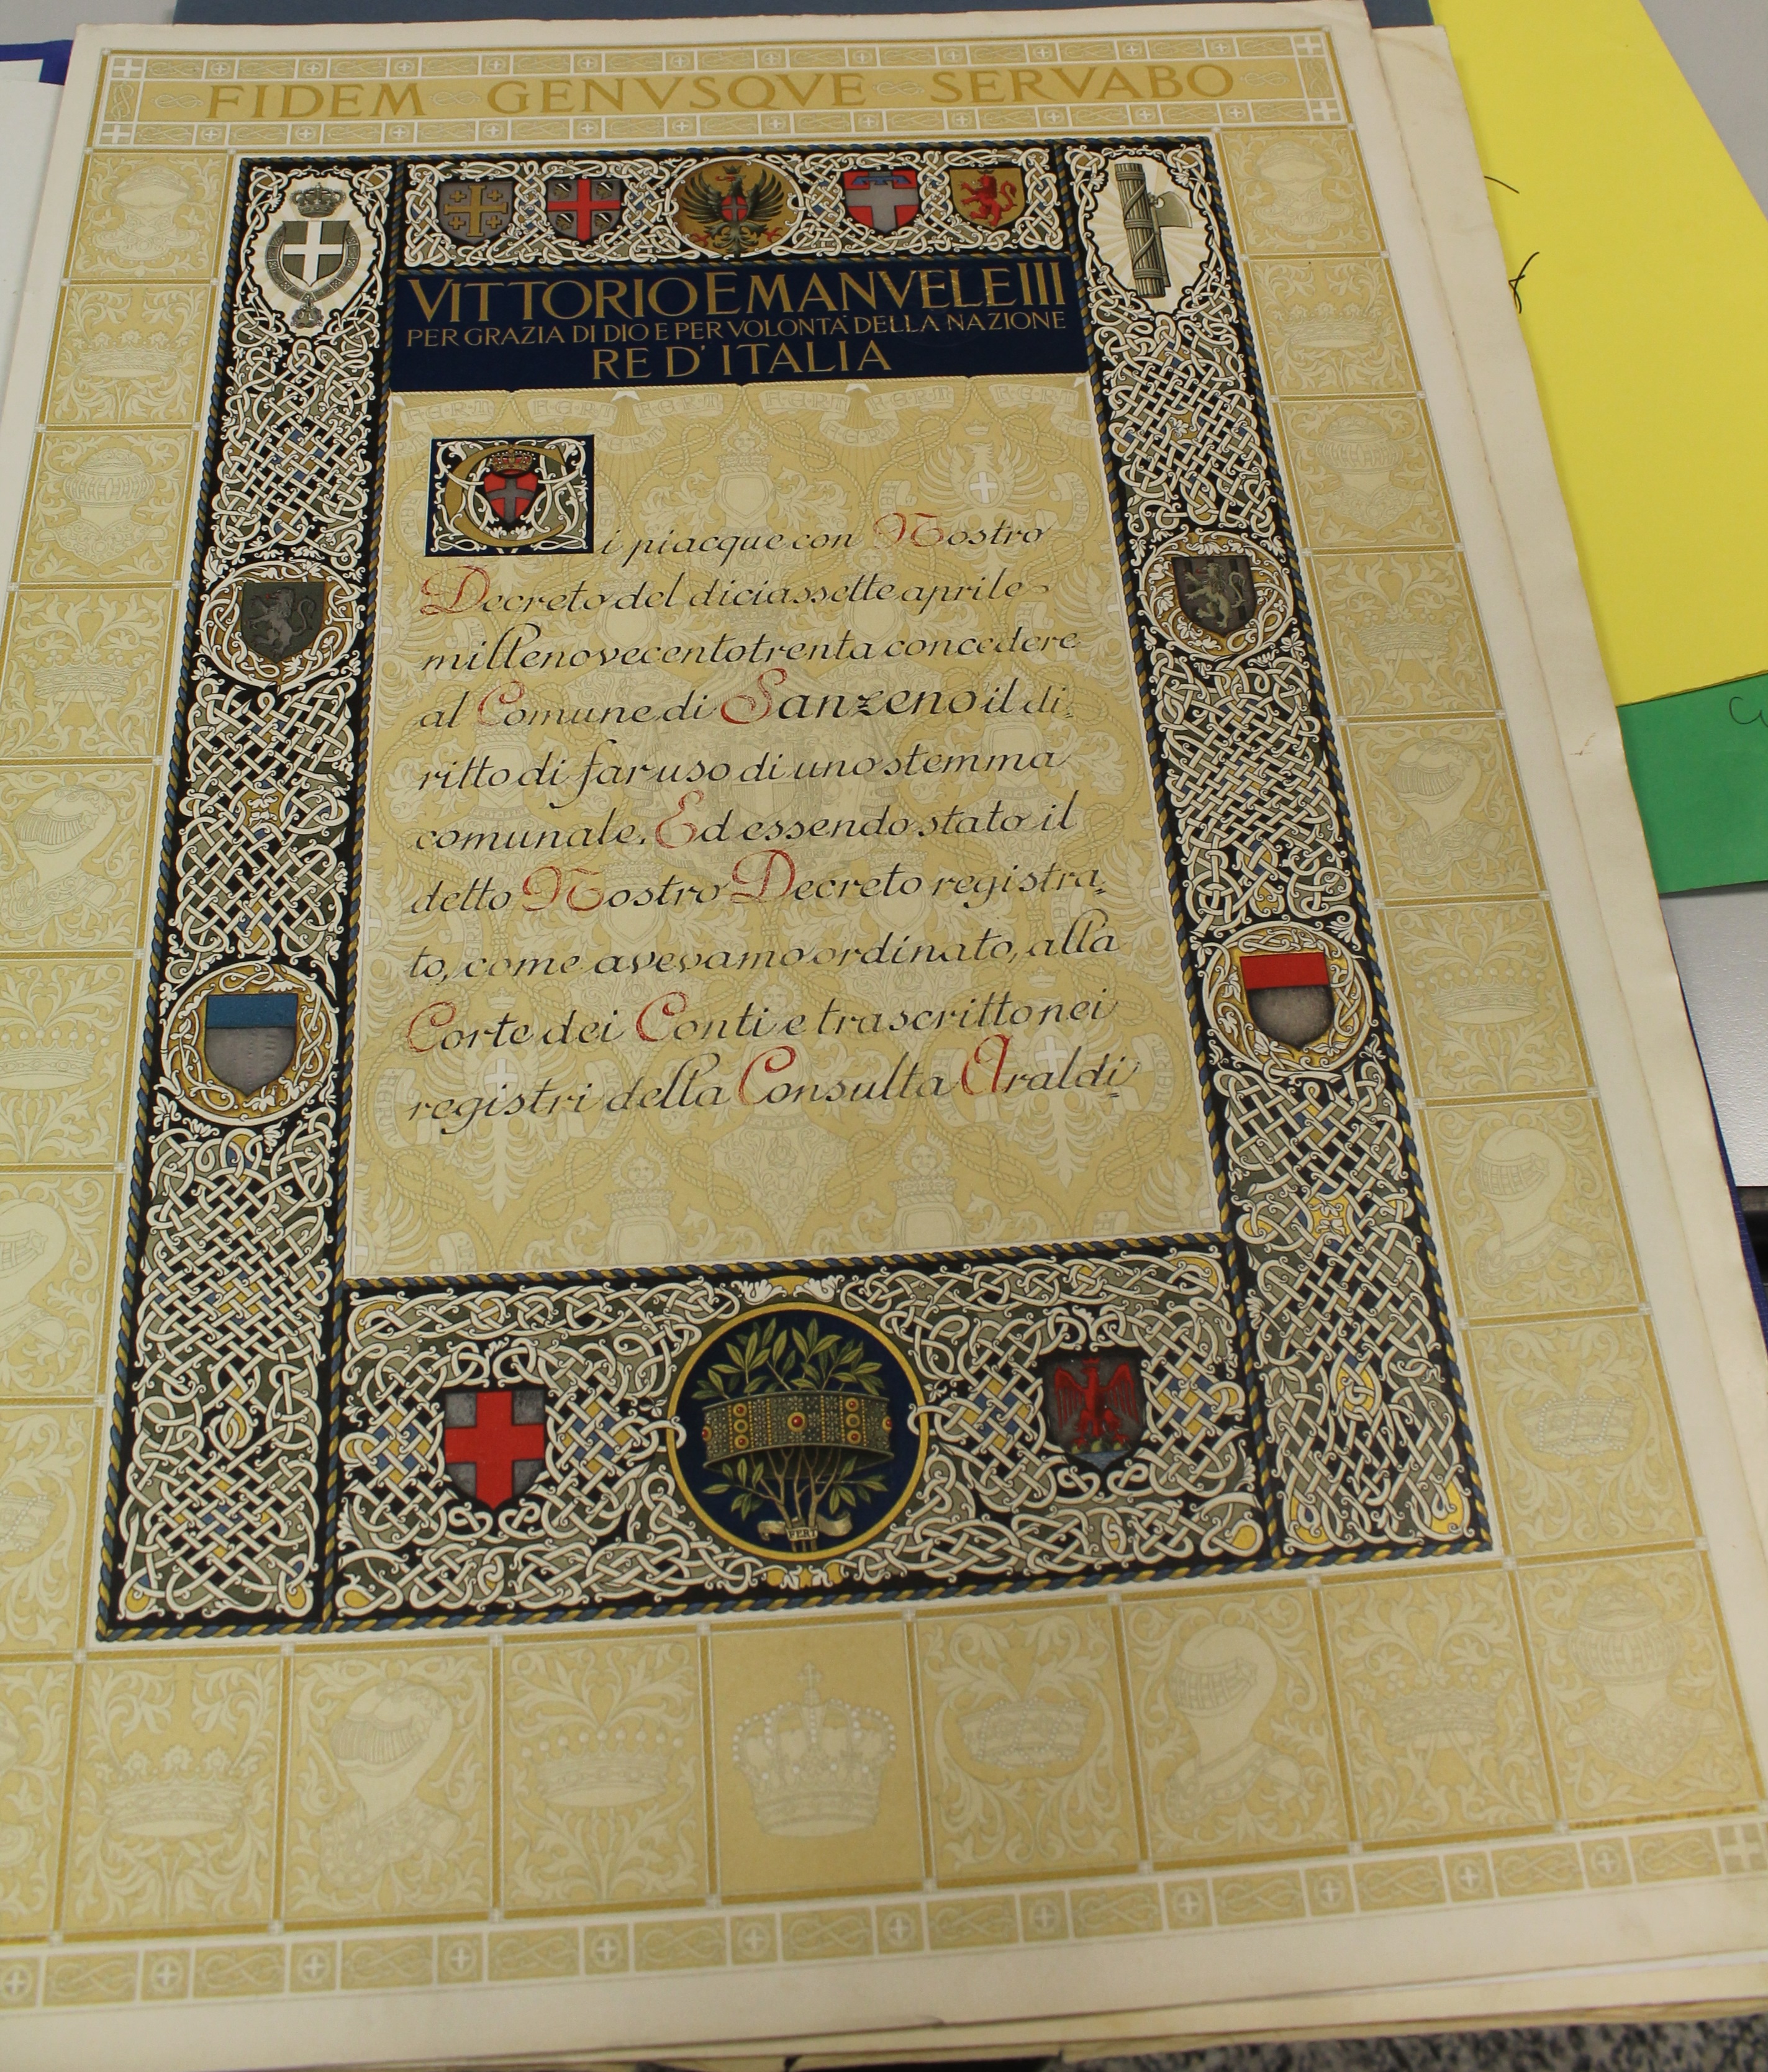 FIDEM GENVSQVE SERVABO
VITTORIO EMANVELE III
PER GRAZIA DI DIO E PER VOLONTA' DELLA NAZIONE
RE D'ITALIA
Ci piacque con Nostro
Decreto del diciassette aprile
millenovecentotrenta concedere
al Comune di Sanzeno il di-
ritto di far uso di uno stemma
comunale. Ed essendo stato il
detto Nostro Decreto registra-
to, come avevamo ordinato, alla
Corte dei Conti e trascritto nei
registri della Consulta Araldi-
FERT